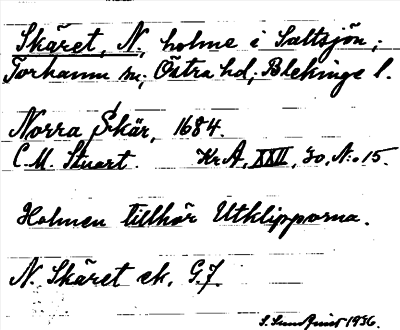 Skäret, N., holme i Saltsjön;
Torhamn sn; Östra hd; Blekinge l.
Norra Skär, 1684.
C.M. Stuart. Kr A, XXII, 30, N:o 15.
Holmen tillhör Utklipporna.
N. Skäret ek. G.7.
S. Sundquist 1936.